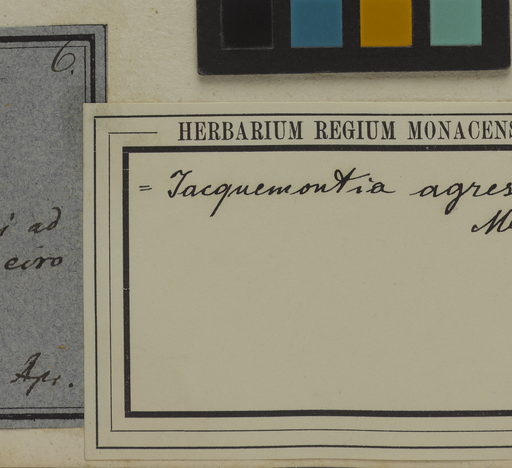 6.
ad
eiro
Apr.
HERBARIUM REGIUM MONACENS
= Jacquemontia agres